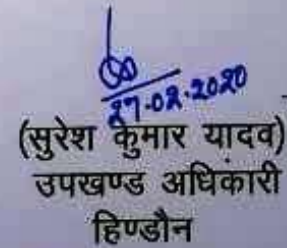 27-02-2020
(सुरेश कुमार यादव)
उपखण्ड अधिकारी
हिण्डौन